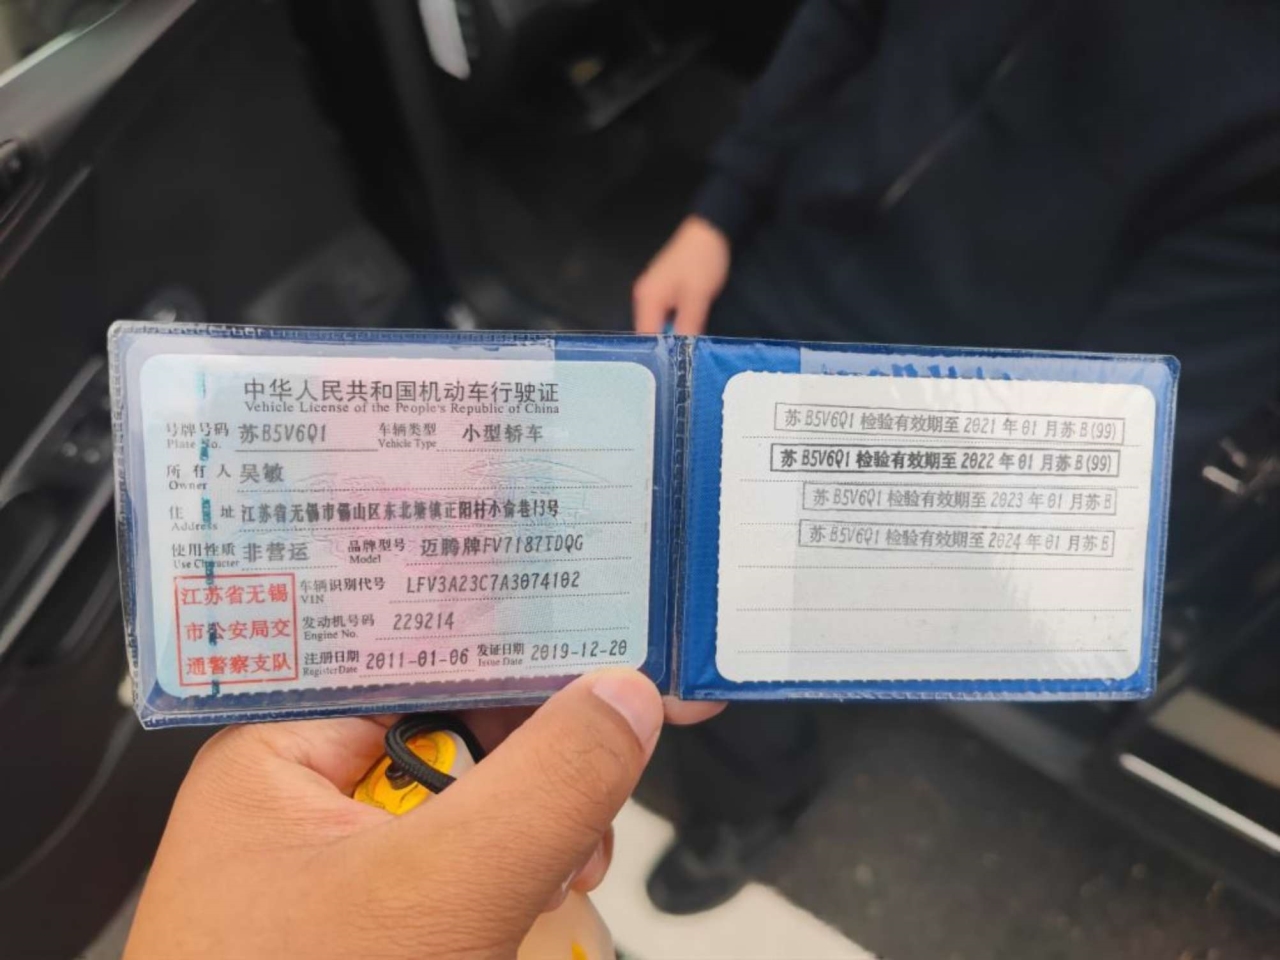 中华人民共和国机动车行驶证
Vehicle License of the People's Republic of China
号牌号码 苏B5V6Q1 车辆类型 小型轿车
Plate No. Vehicle Type
所有人 吴敏
Owner
住址 江苏省无锡市锡山区东北塘镇正阳村小俞巷13号
Address
使用性质 非营运 品牌型号 迈腾牌FV7187TDQG
Use Character Model
江苏省无锡
市公安局交
通警察支队
车辆识别代号 LFV3A23C7A3074102
VIN
发动机号码 229214
Engine No.
注册日期 2011-01-06 发证日期 2019-12-20
Register Date Issue Date
苏B5V6Q1检验有效期至2021年01月苏B(99)
苏B5V6Q1检验有效期至2022年01月苏B(99)
苏B5V6Q1检验有效期至2023年01月苏B
苏B5V6Q1检验有效期至2024年01月苏B